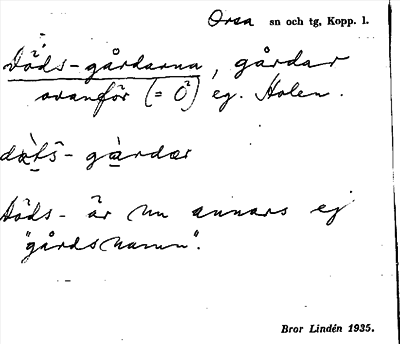 Orsa sn och tg, Kopp. l.
Döds-gårdarna, gårdar
ovanför (= Ö²) eg. Holen.
gàrdær
Döds- är nu annars ej
"gårdsnamn".
Bror Lindén 1935.